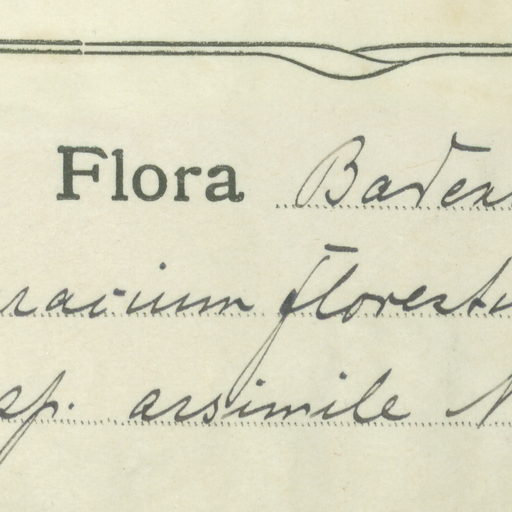 Flora Baden
racium florestu
sp. arsimile N